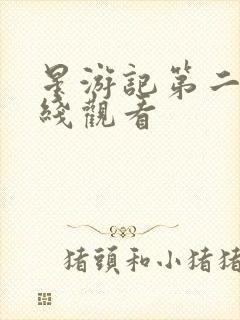 星游記第二
綫觀看
猪頭和小猪猪